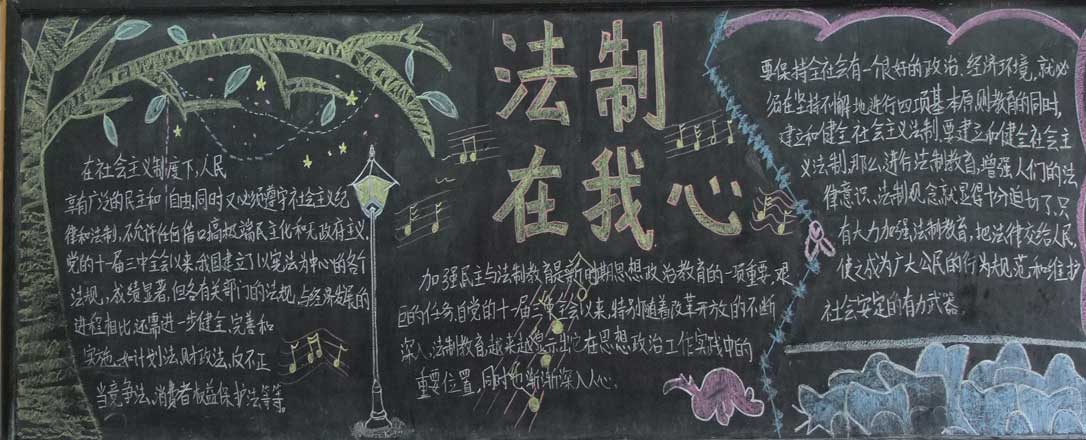 法制
在我心
在社会主义制度下,人民
享有广泛的民主和自由,同时又必须遵守社会主义纪
律和法制,不允许任何借口搞极端民主化和无政府主义.
党的十一届三中全会以来,我国建立了以宪法为中心的各个
法规,成绩显著,但各有关部门的法规,与经济发展的
进程相比还需进一步健全、完善和
实施,如计划法,财政法,反不正
当竞争法、消费者权益保护法等等。
加强民主与法制教育是新时期思想政治教育的一项重要、艰
巨的任务.自党的十一届三中全会以来,特别随着改革开放的不断
深入,法制教育越来越显示出它在思想政治工作实践中的
重要位置,同时也渐渐深入人心.
要保持全社会有一个很好的政治、经济环境,就必
须在坚持不懈地进行四项基本原则教育的同时,
建立和健全社会主义法制要建立和健全社会主
义法制,那么,进行法制教育,增强人们的法
律意识、法制观念就显得十分迫切了,只
有大力加强法制教育,把法律交给人民,
使之成为广大公民的行为规范和维护
社会安定的有力武器